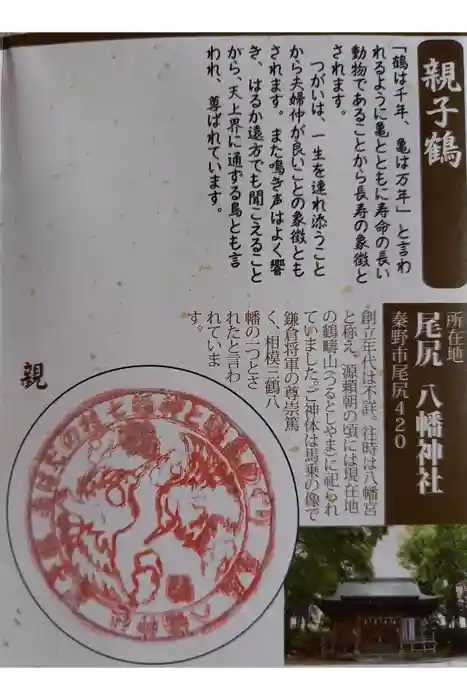 親子鶴
「鶴は千年、亀は万年」と言わ
れるように亀とともに寿命の長い
動物であることから長寿の象徴と
されます。
つがいは、一生を連れ添うこと
から夫婦仲が良いことの象徴とも
されます。また鳴き声はよく響
き、はるか遠方でも聞こえること
から、天上界に通ずる鳥とも言
われ、尊ばれています。
所在地
尾尻 八幡神社
秦野市尾尻420
創立年代は不詳。往時は八幡宮
と称え、源頼朝の頃には現在地
の鶴疇山(つるとしやま)に祀られ
ていました。ご神体は馬乗の像で
鎌倉将軍の尊崇篤
く、相模三鶴八
幡の一つとさ
れたと言わ
れていま
す。
親